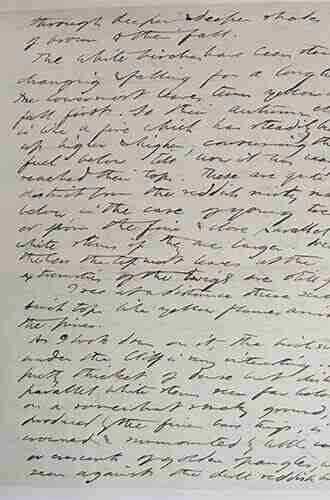 through deeper & deeper shades
of brown & then fall.
The white birches have been stea
changing & falling for a long t
The lowermost leaves turn yellow
fall first. So their autumn c
is like a fire which has steadily b
up higher & higher, consuming the
fuel below till now it has nea
reached their tops. These are quite
distinct from the reddish misty ma
below in the case of young tre
or from the fine & close parallel
white stems of the larger
the less the topmost leaves at the
extremities of the twigs are still
I see at a distance these
birch tops like yellow flames am
the pines.
As I look down on it the
under the Cliff is very interesting
pretty thicket of dense but dis
parallel white stems seen far bel
on a somewhat smoky ground,
produced by the finer bare twigs, is
crowned & surmounted by little con
or crescents of golden spangles,
seen against the dull reddish